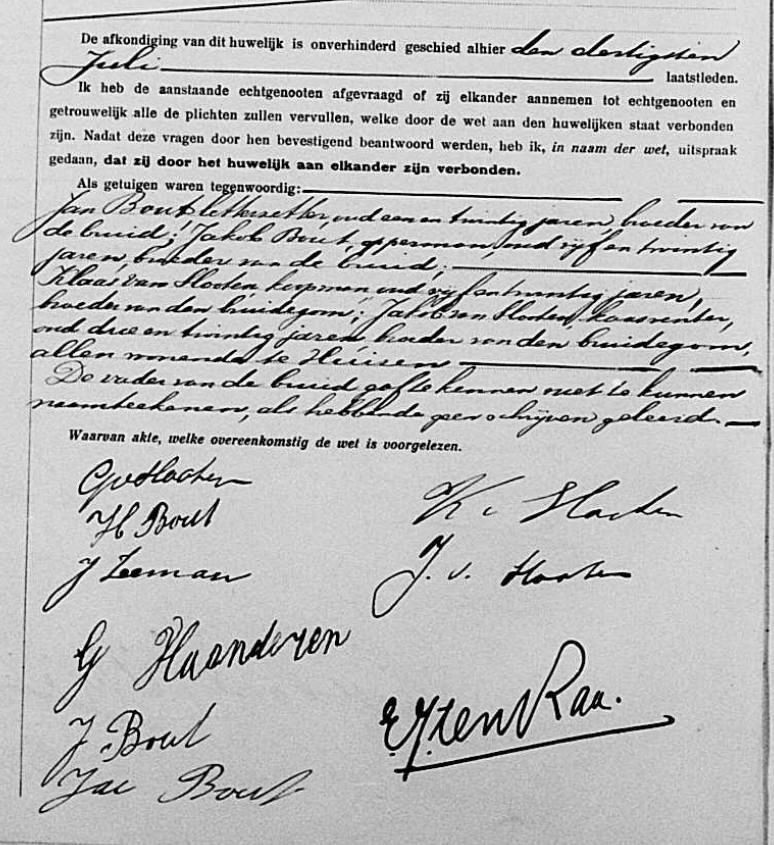 De afkondiging van dit huwelijk is onverhinderd geschied alhier den dertigsten
Juli laatstleden.
Ik heb de aanstaande echtgenooten afgevraagd of zij elkander aannemen tot echtgenooten en
getrouwelijk alle de plichten zullen vervullen, welke door de wet aan den huwelijken staat verbonden
zijn. Nadat deze vragen door hen bevestigend beantwoord werden, heb ik, in naam der wet, uitspraak
gedaan, dat zij door het huwelijk aan elkander zijn verbonden.
Als getuigen waren tegenwoordig:
Jan Bout letterzetter, oud een en twintig jaren, broeder van
de bruid; Jakob Bout, opperman, oud vijf en twintig
jaren, broeder van de bruid;
Klaas van Slooten koopman oud vijf en twintig jaren,
broeder van den bruidegom; Jakob van Slooten, kaasventer,
oud drie en twintig jaren, broeder van den bruidegom,
allen wonende te Huizen
De vader van de bruid gaf te kennen niet te kunnen
naamteekenen, als hebbende geen schrijven geleerd.
Waarvan akte, welke overeenkomstig de wet is voorgelezen.
GvSlooten
K v Slooten
H Bout
J Zeeman
J. v. Slooten
G Haanderen
J Bout
Jac Bout
ten Raa.